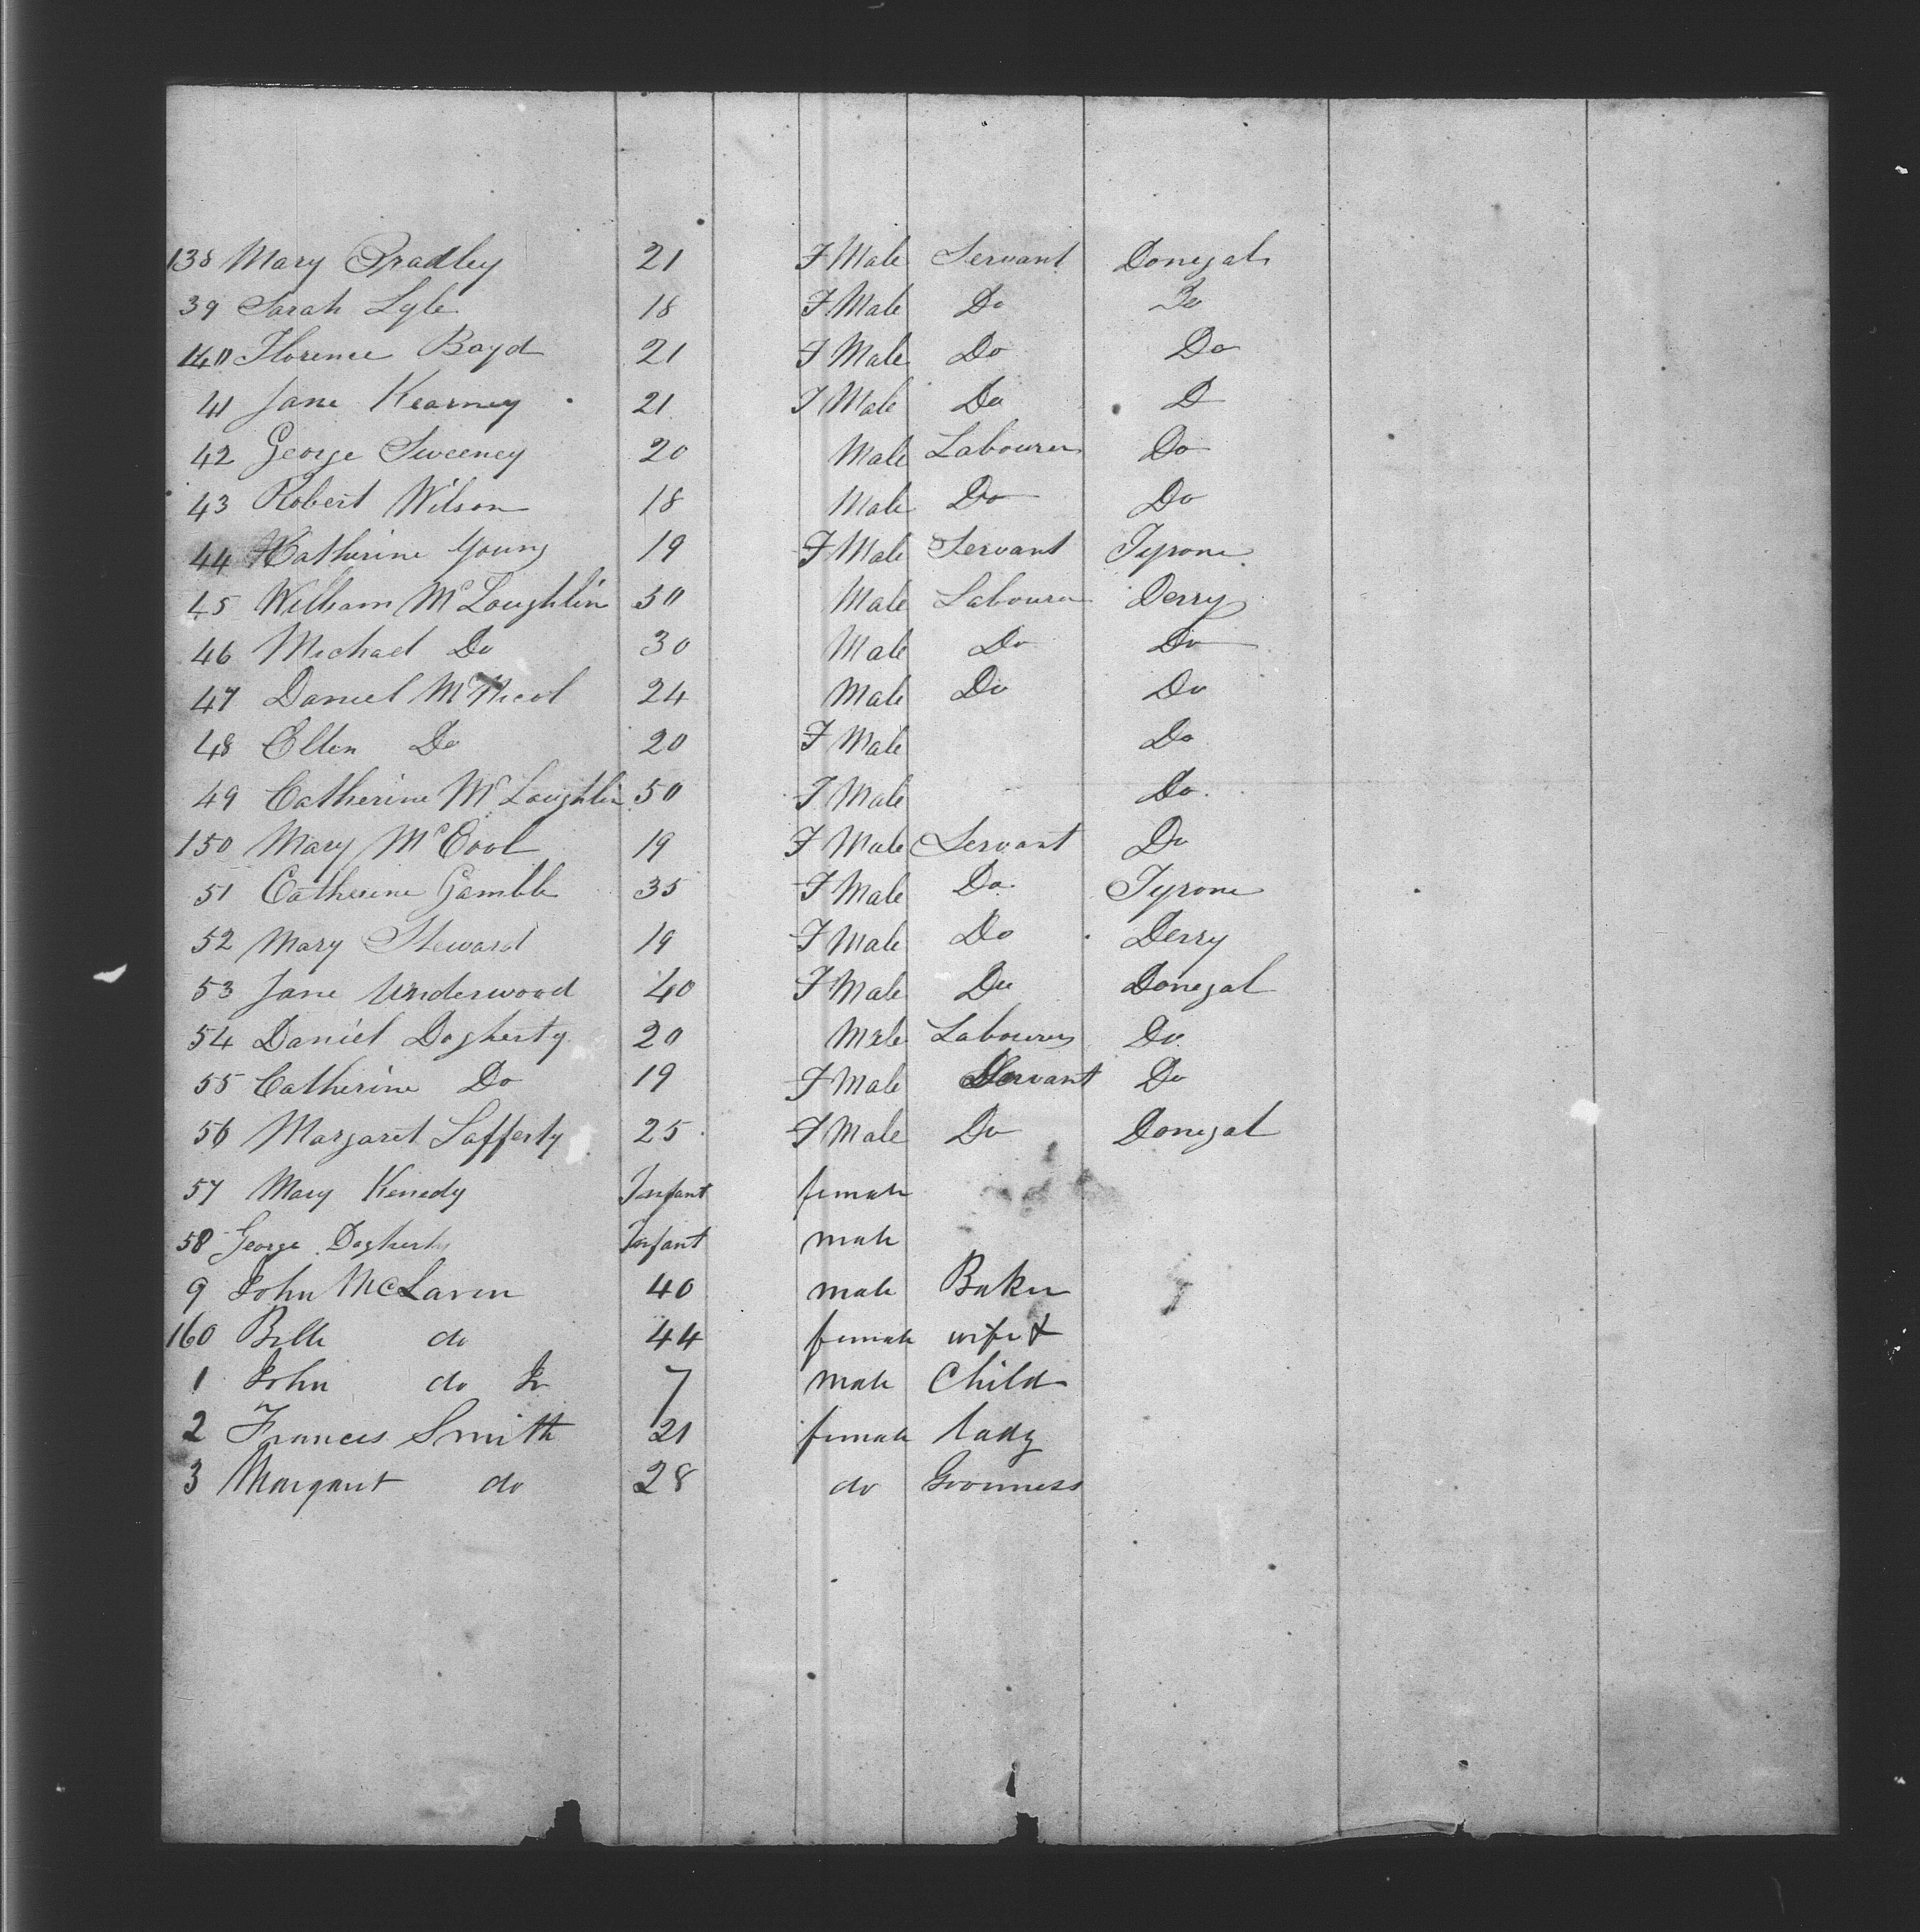 138 Mary Bradley 21 F Male Servant Donegal
39 Sarah Lyle 18 F Male Do Do
140 Florence Boyd 21 F Male Do Do
41 Jane Kearney 21 F Male Do D
42 George Sweeney 20 Male Labourer Do
43 Robert Wilson 18 Male Do Do
44 Catherine Young 19 F Male Servant Tyrone
45 William McLoughlin 50 Male Labourer Derry
46 Michael Do 30 Male Do Do
47 Daniel McNicol 24 Male Do Do
48 Ellen Do 20 F Male Do
49 Catherine McLoughlin 50 F Male Do
150 Mary McCool 19 F Male Servant Do
51 Catherine Gamble 35 F Male Do Tyrone
52 Mary Steward 19 F Male Do Derry
53 Jane Underwood 40 F Male Do Donegal
54 Daniel Dogherty 20 Male Labourer Do
55 Catherine Do 19 F Male Servant Do
56 Margaret Lafferty 25 F Male Do Donegal
57 Mary Kenedy Infant female
58 George Dogherty Infant male
9 John McLaren 40 male Baker
160 Belle do 44 female wife &
1 John do Jr 7 male Child
2 Frances Smith 21 female lady
3 Margaret do 28 do